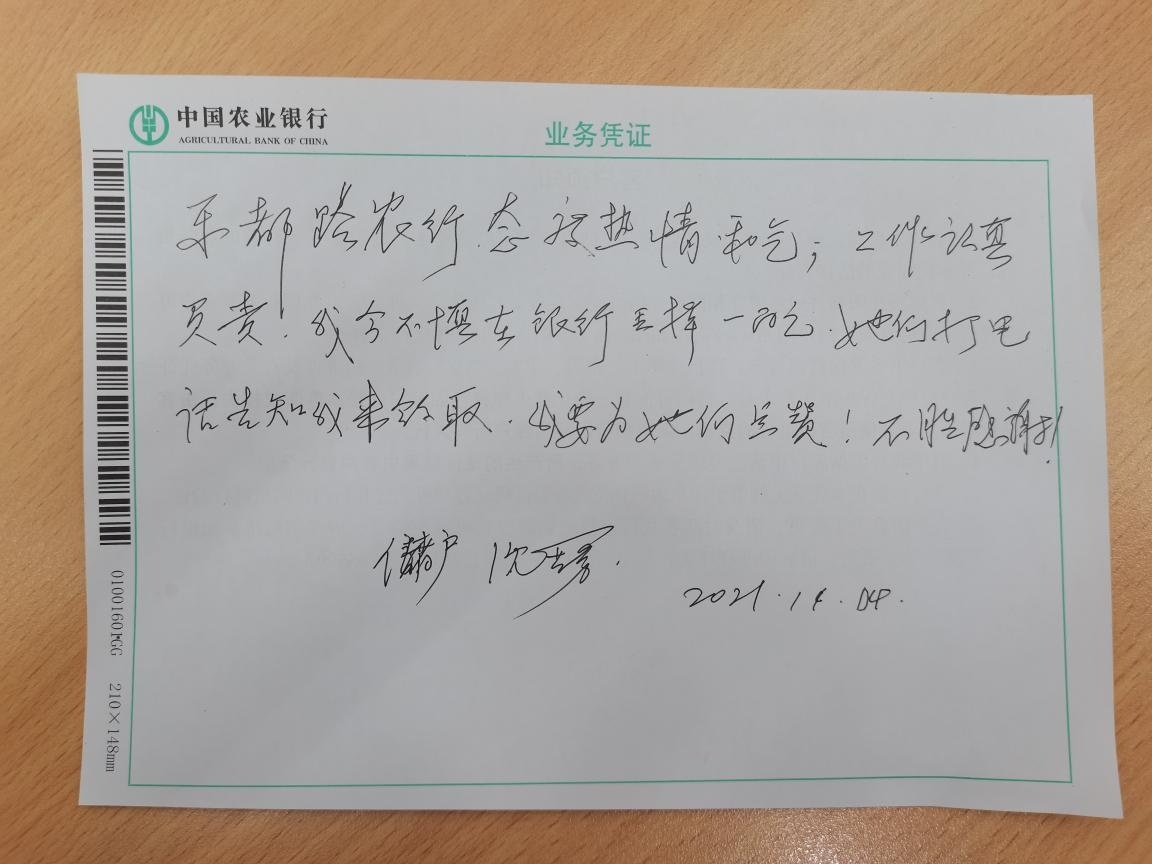 中国农业银行
AGRICULTURAL BANK OF CHINA
业务凭证
乐都路农行态度热情和气；工作认真
负责！我今不慎在银行丢掉一万元.她们打电
话告知我来领取.我要为她们点赞！不胜感谢！
储户 沈
2021.14.04.
01001601GG 210×148mm